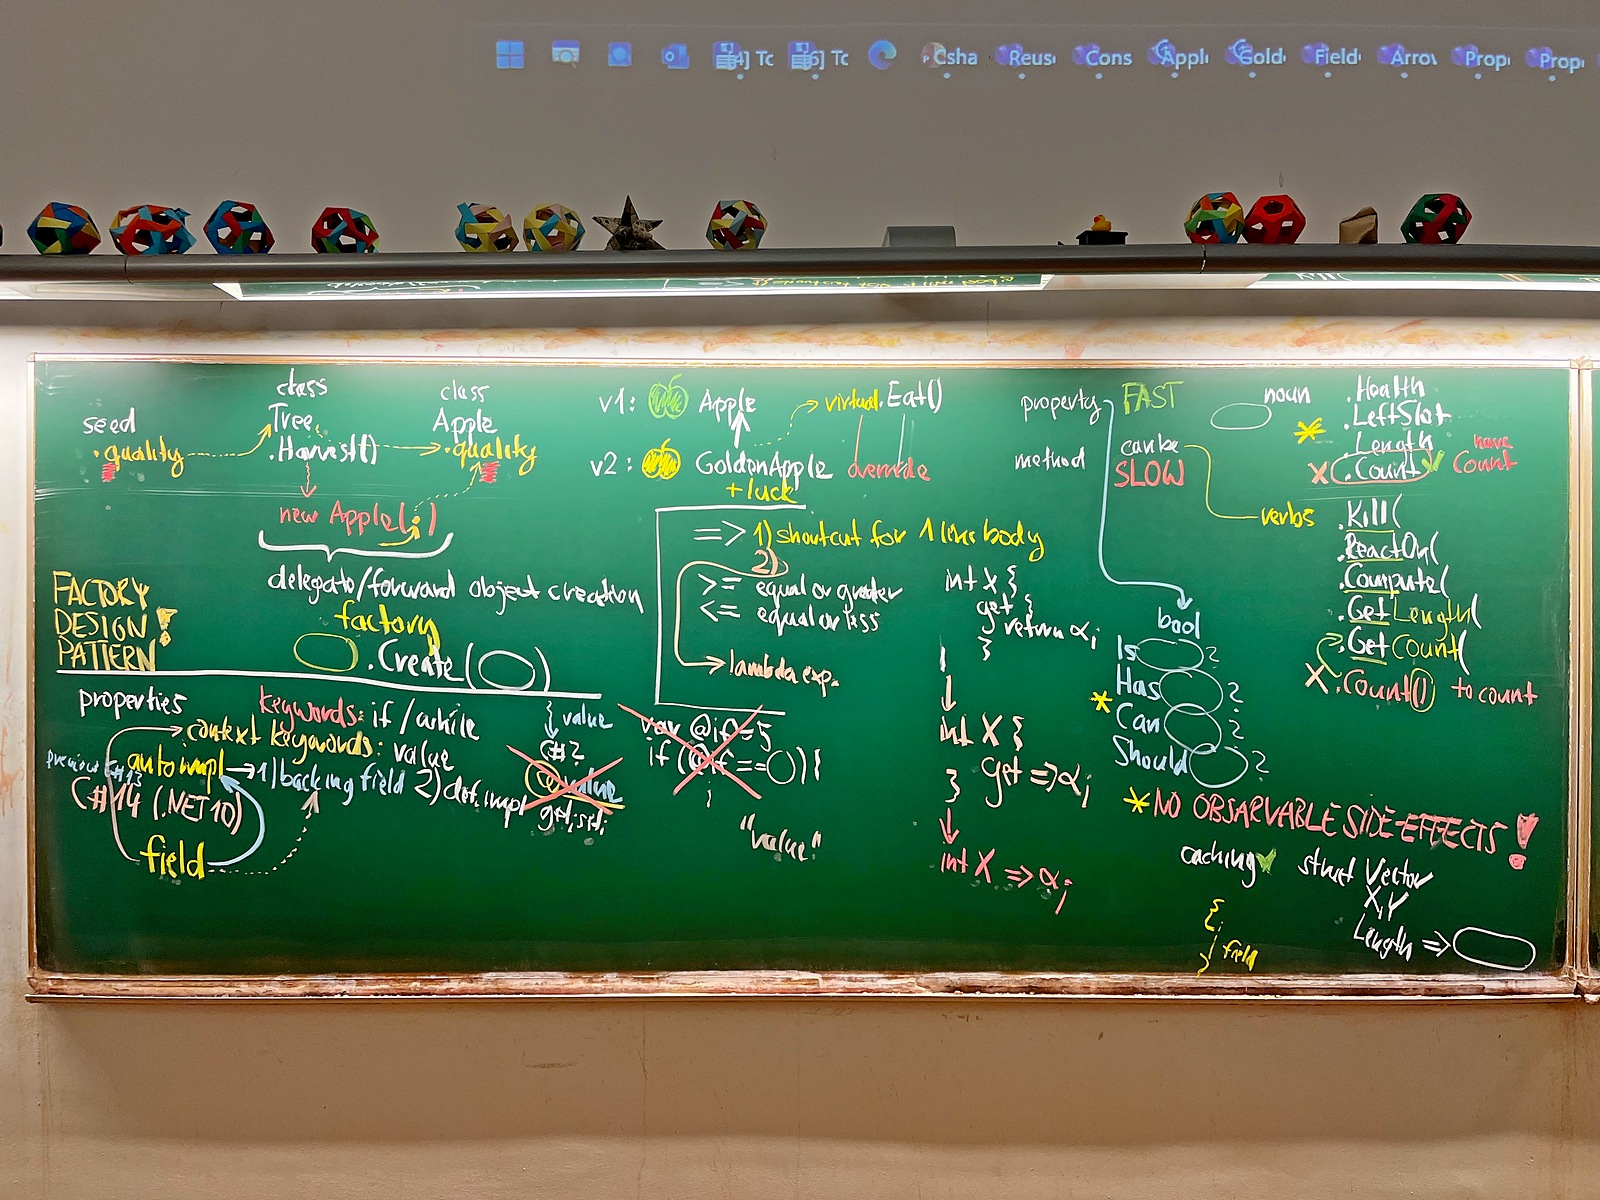 [4] Tc
[6] Tc
Csha
Reus
Cons
Appli
Gold
Field
Arrov
Prop
Prop
seed
.quality
class
Tree
.Harvest()
class
Apple
.quality
new Apple( )
delegate/forward object creation
factory
.Create( )
FACTORY
DESIGN
PATTERN!
v1: Apple
virtual.Eat()
v2: GoldenApple override
+luck
=> 1) shortcut for 1 line body
2)
>= equal or greater
<= equal or less
lambda exp.
properties
keywords: if / while
context keywords: value
autoimpl → 1) backing field 2) def. impl
get; set;
C#14 (.NET 10)
field
{ value
C#2
@value
var @if = 5
if (@if == ){
;
"value"
int X {
get {
return α;
}
int X {
get => α;
}
int X => α;
property FAST
method can be
SLOW
noun
verbs
.Health
.LeftSlot
.Length
X .Count ✓
have
Count
.Kill(
.ReactOn(
.Compute(
.GetLength(
.GetCount(
X .Count() to count
bool
Is ?
Has ?
* Can ?
Should ?
* NO OBSARVABLE SIDE-EFFECTS!
caching ✓
{
} field
struct Vector
X, Y
Length =>